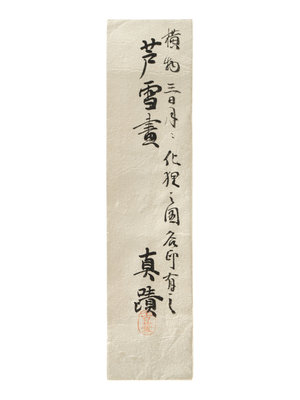 横物 三日月ニ 化狸之図 名印有之
芦雪畫 真蹟